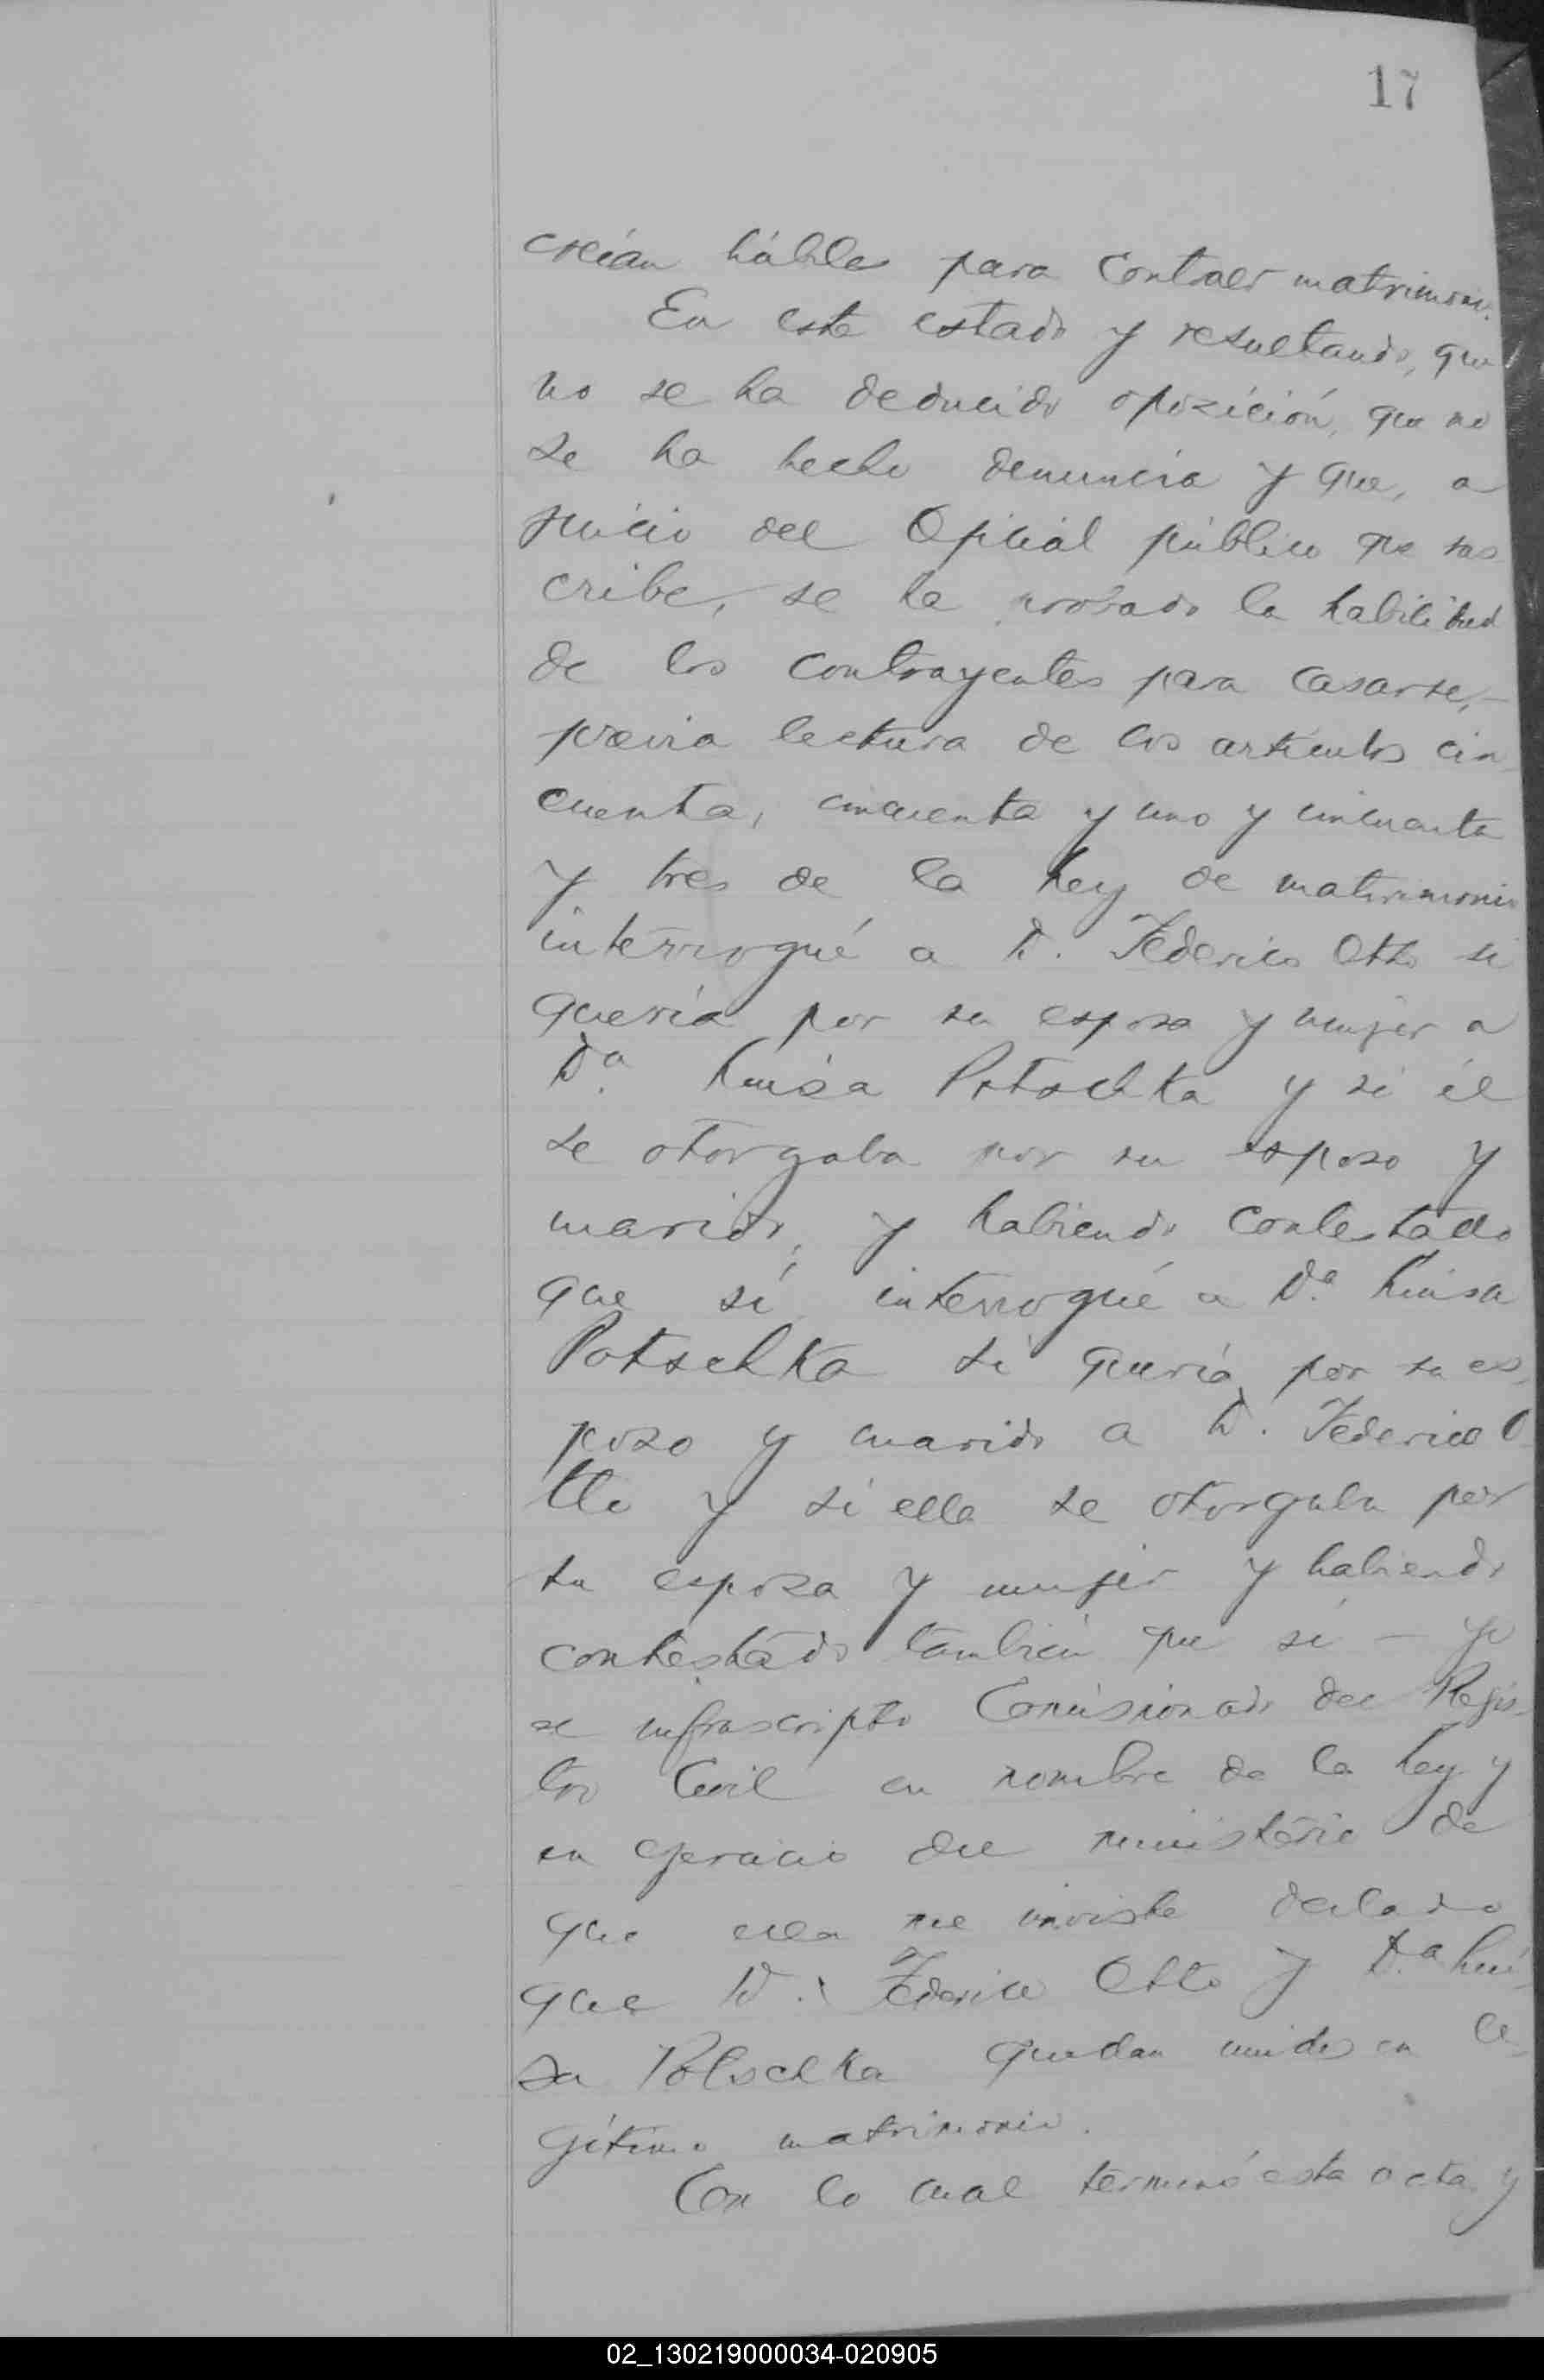 17
creían hábiles para contraer matrimonio.
En este estado y resultando, que
no se ha deducido oposición, que no
se ha hecho denuncia y que, a
juicio del Oficial público que sus
cribe, se ha probado la habilidad
de los contrayentes para casarse,-
previa lectura de los artículos cin-
cuenta, cincuenta y uno y cincuenta
y tres de la Ley de matrimonio
interrogué a D. Federico Otto si
quería por su esposa y mujer a
Da. Luisa Potschka y si él
se otorgaba por su esposo y
marido, y habiendo contestado
que sí interrogué a Da. Luisa
Potschka si quería por su es-
poso y marido a D. Federico O
tto y si ella se otorgaba por
su esposa y mujer y habiendo
contestado también que sí - yo
el infrascripto Comisionado del Regis-
tro Civil en nombre de la Ley y
en ejercicio del ministerio de
que ella me inviste declaro
que D. Federico Otto y Da. Lui-
sa Potschka quedan unidos en le-
gítimo matrimonio.
Con lo cual terminó esta acta, y
02_130219000034-020905